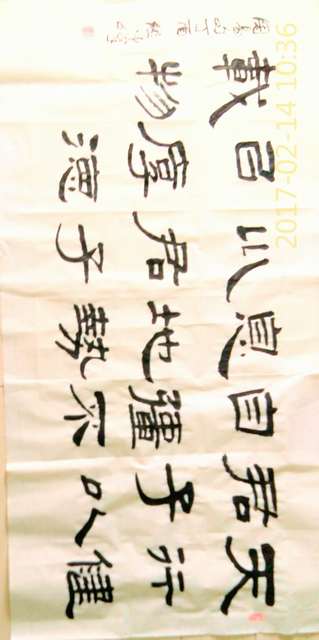 天行健
君子以
自彊不
息地勢
坤君子
㠯厚德
載物
2017-02-14 10:36